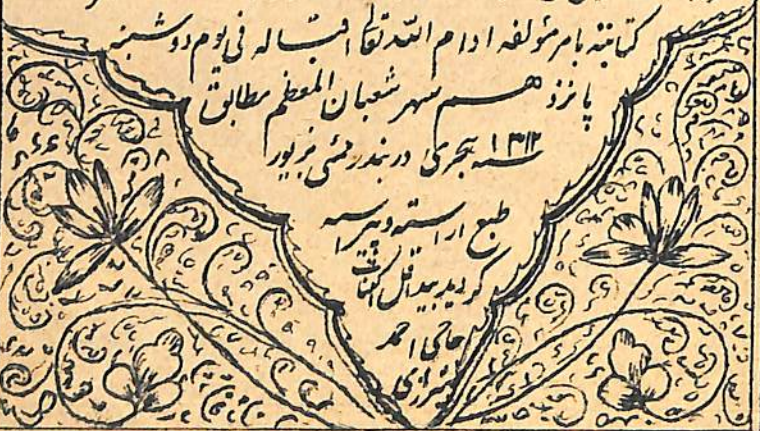 کتابته بامر مؤلفه ادام الله تعالی اقباله فی یوم دوشنبه
پانزدهم شهر شعبان المعظم مطابق
سنه ۱۳۱۲ هجری در بندر بمبئی بزیور
طبع اراسته و پیراسته
کردید بید اقل الکتاب
حاجی احمد
شیرازی